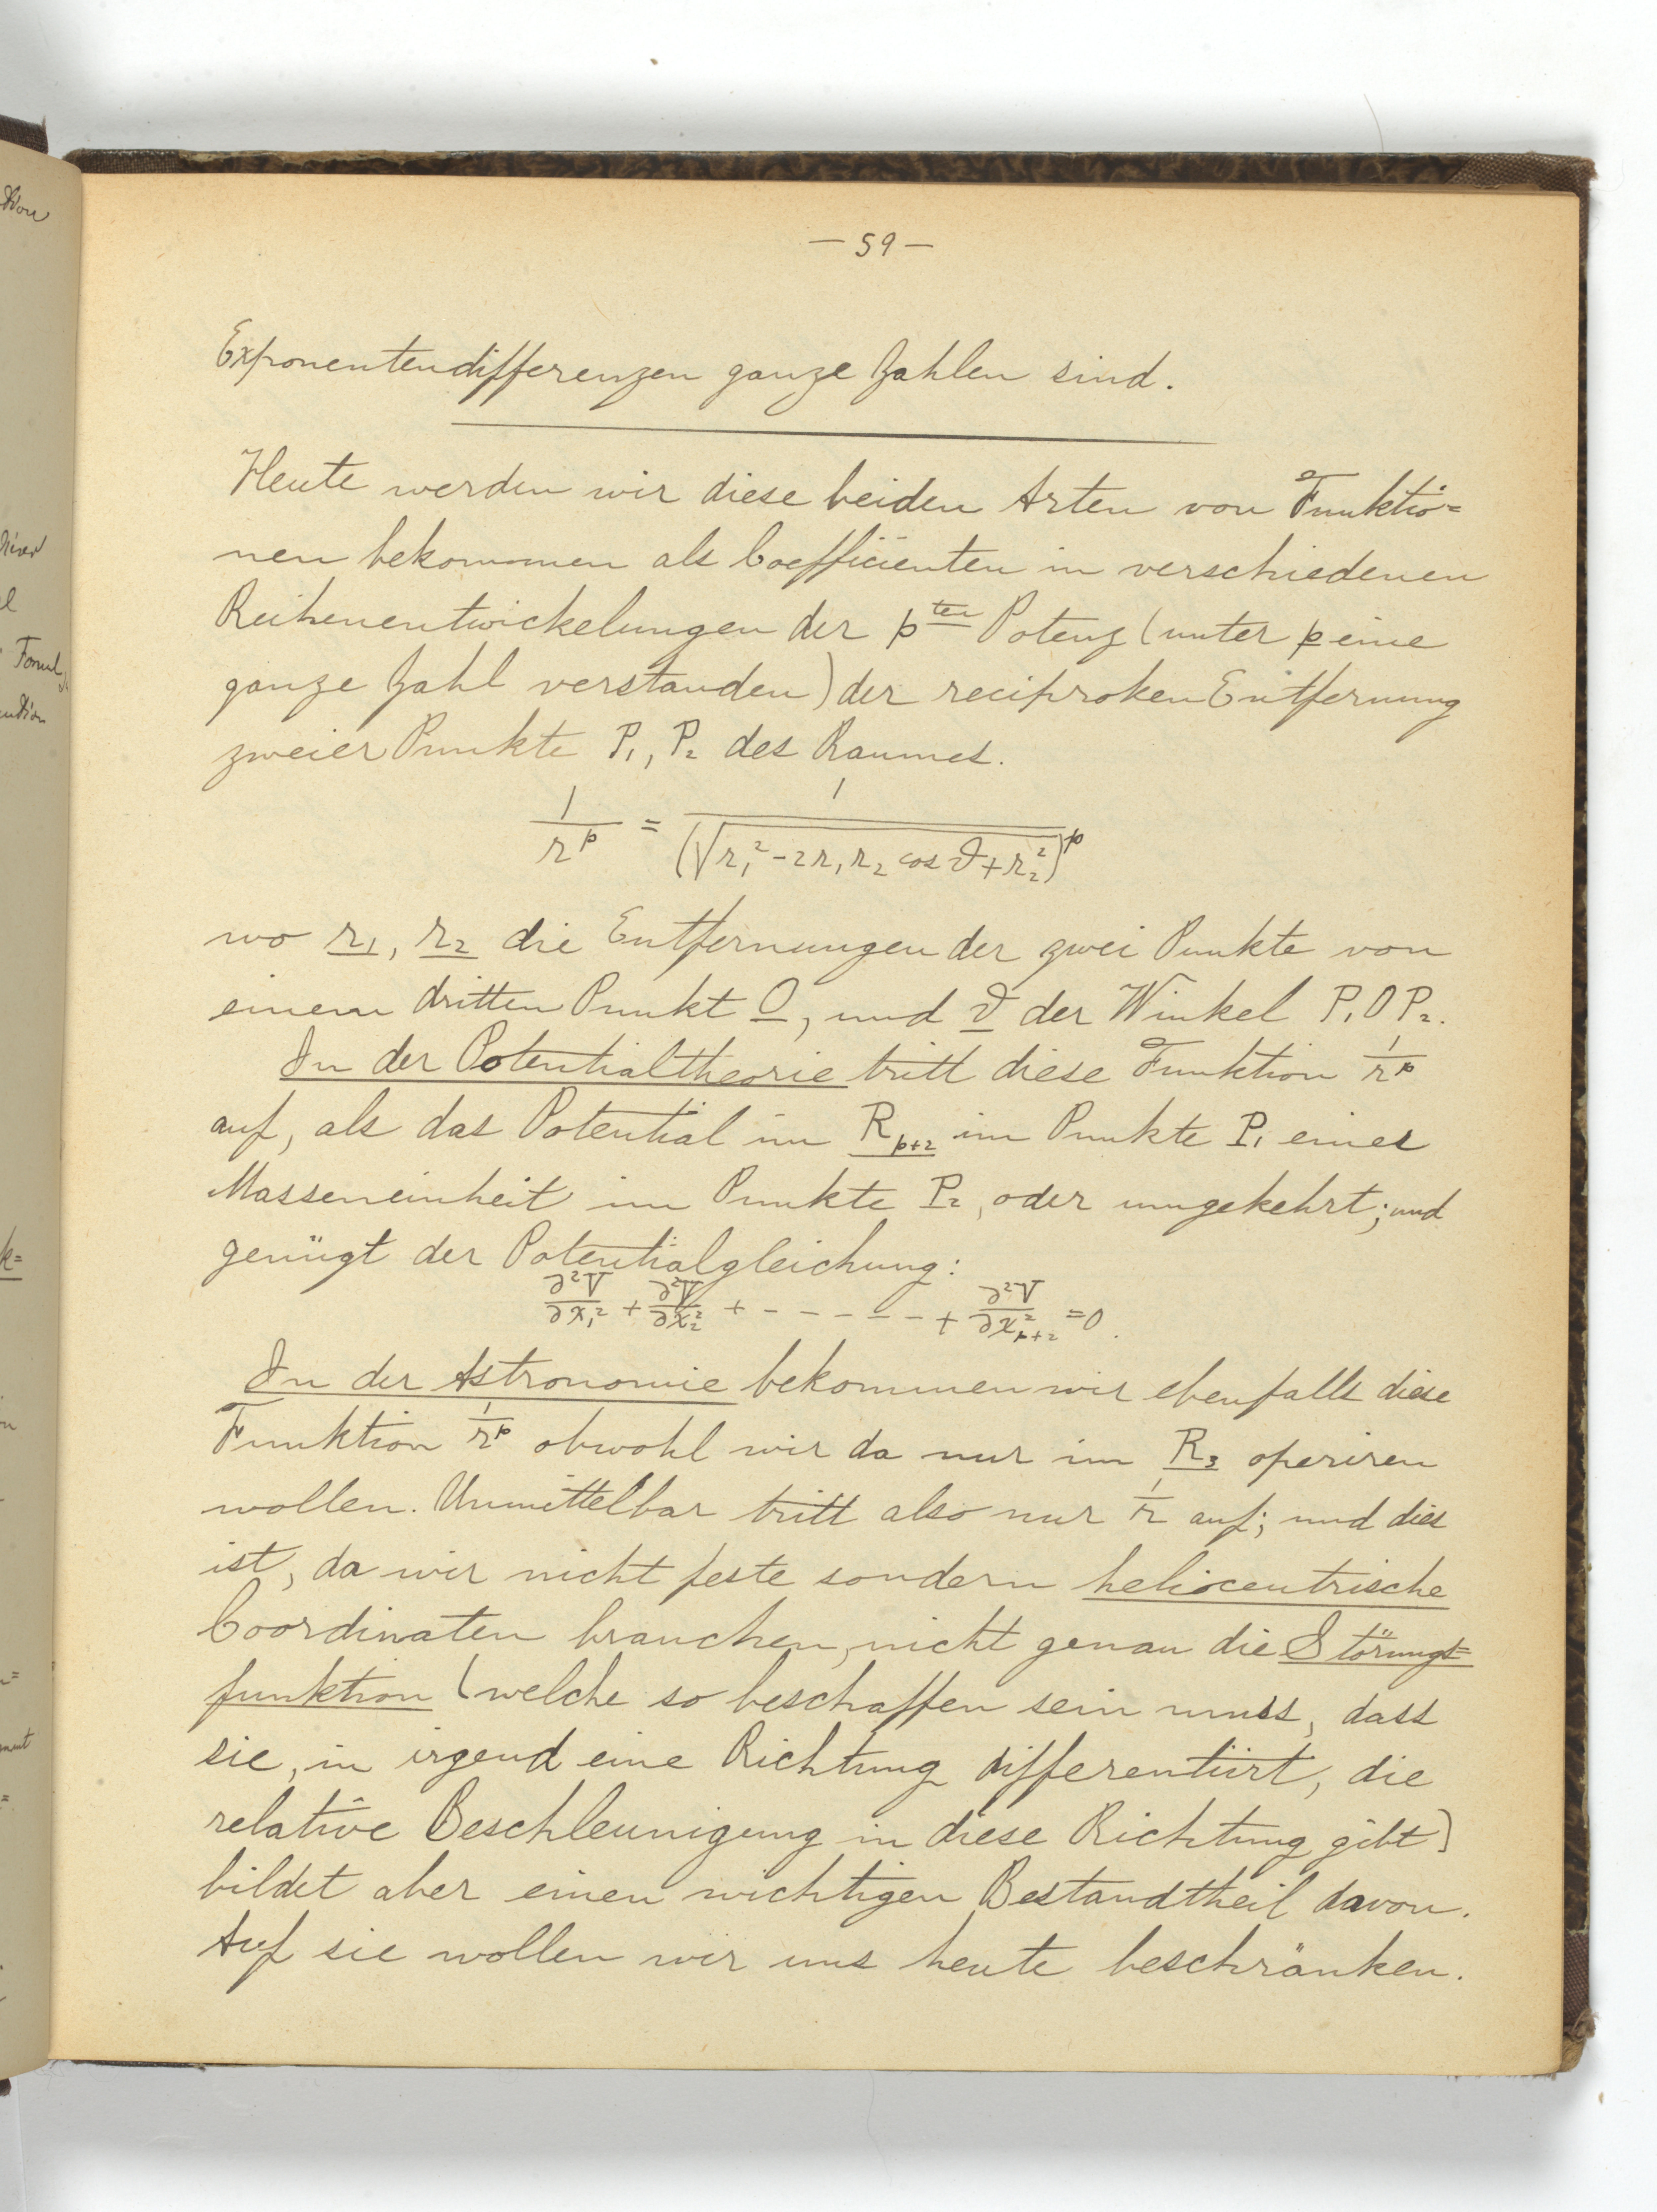 — 59 —
Exponentendifferenzen ganze Zahlen sind.
Heute werden wir diese beiden Arten von Funktio=
nen bekommen als Coefficienten in verschiedenen
Reihenentwickelungen der p^ten Potenz (unter p eine
ganze Zahl verstanden) der reciproken Entfernung
zweier Punkte P₁, P₂ des Raumes.
1/r^p = 1/(√r₁²-2r₁r₂ cos ϑ+r₂²)^p
wo r₁, r₂ die Entfernungen der zwei Punkte von
einem dritten Punkt O, und ϑ der Winkel P₁OP₂.
In der Potentialtheorie tritt diese Funktion 1/r^p
auf, als das Potential im R_{p+2} im Punkte P₁ einer
Masseneinheit im Punkte P₂, oder umgekehrt; und
genügt der Potentialgleichung:
∂²V/∂x₁² + ∂²V/∂x₂² + - - - - - - + ∂²V/∂x²_{p+2} = 0.
In der Astronomie bekommen wir ebenfalls diese
Funktion 1/r^p obwohl wir da nur im R₃ operiren
wollen. Unmittelbar tritt also nur 1/r auf; und dies
ist, da wir nicht feste sondern heliocentrische
Coordinaten brauchen, nicht genau die Störungs=
funktion (welche so beschaffen sein muss, dass
sie, in irgend eine Richtung differentiirt, die
relative Beschleunigung in diese Richtung gibt)
bildet aber einen wichtigen Bestandtheil davon.
Auf sie wollen wir uns heute beschränken.
Formel